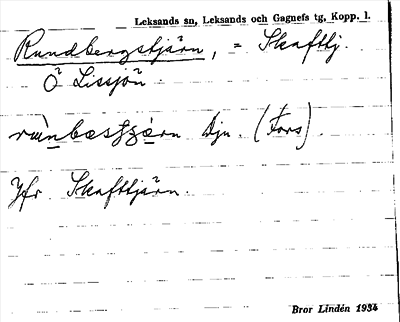 Leksands sn, Leksands och Gagnefs tg, Kopp. l.
Rundbergstjärn, = Skafttj.
Ö Lissjön
Djn. (Fors).
Jfr. Skafttjärn.
Bror Lindén 1934